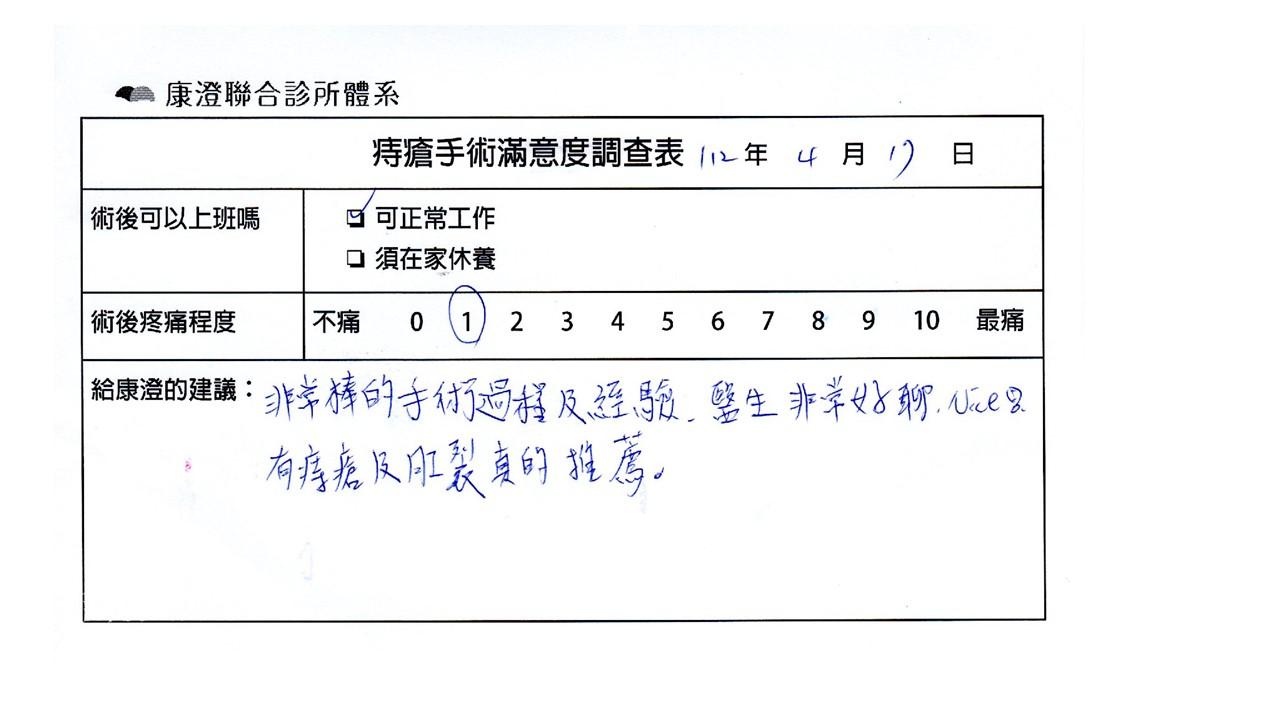 康澄聯合診所體系
痔瘡手術滿意度調查表 112年 4 月 17 日
術後可以上班嗎
可正常工作
須在家休養
術後疼痛程度 不痛 0 1 2 3 4 5 6 7 8 9 10 最痛
給康澄的建議：非常棒的手術過程及經驗、醫生非常好聊, Nice
有痔瘡及肛裂真的推薦。